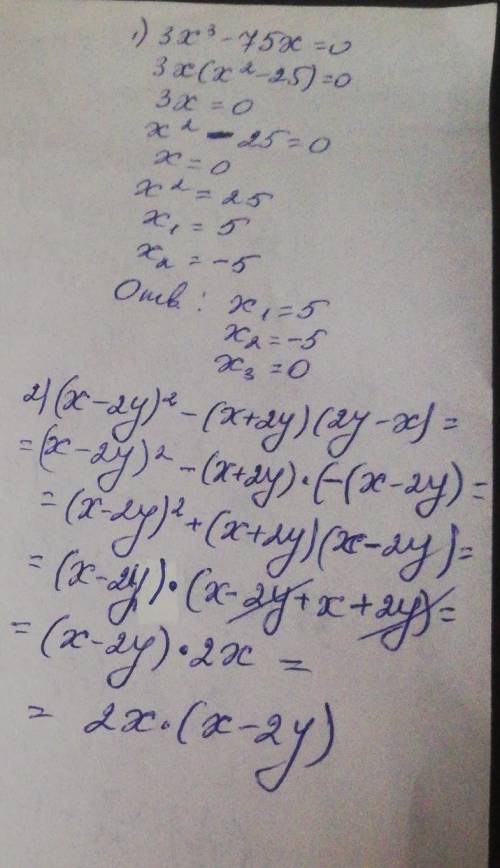 1) 3x³ - 75x = 0
3x(x² - 25) = 0
3x = 0
x² - 25 = 0
x = 0
x² = 25
x₁ = 5
x₂ = -5
Отв: x₁ = 5
x₂ = -5
x₃ = 0
2) (x - 2y)² - (x + 2y)(2y - x) =
= (x - 2y)² - (x + 2y) · (-(x - 2y) =
= (x - 2y)² + (x + 2y)(x - 2y) =
= (x - 2y) · (x - 2y + x + 2y) =
= (x - 2y) · 2x =
= 2x · (x - 2y)